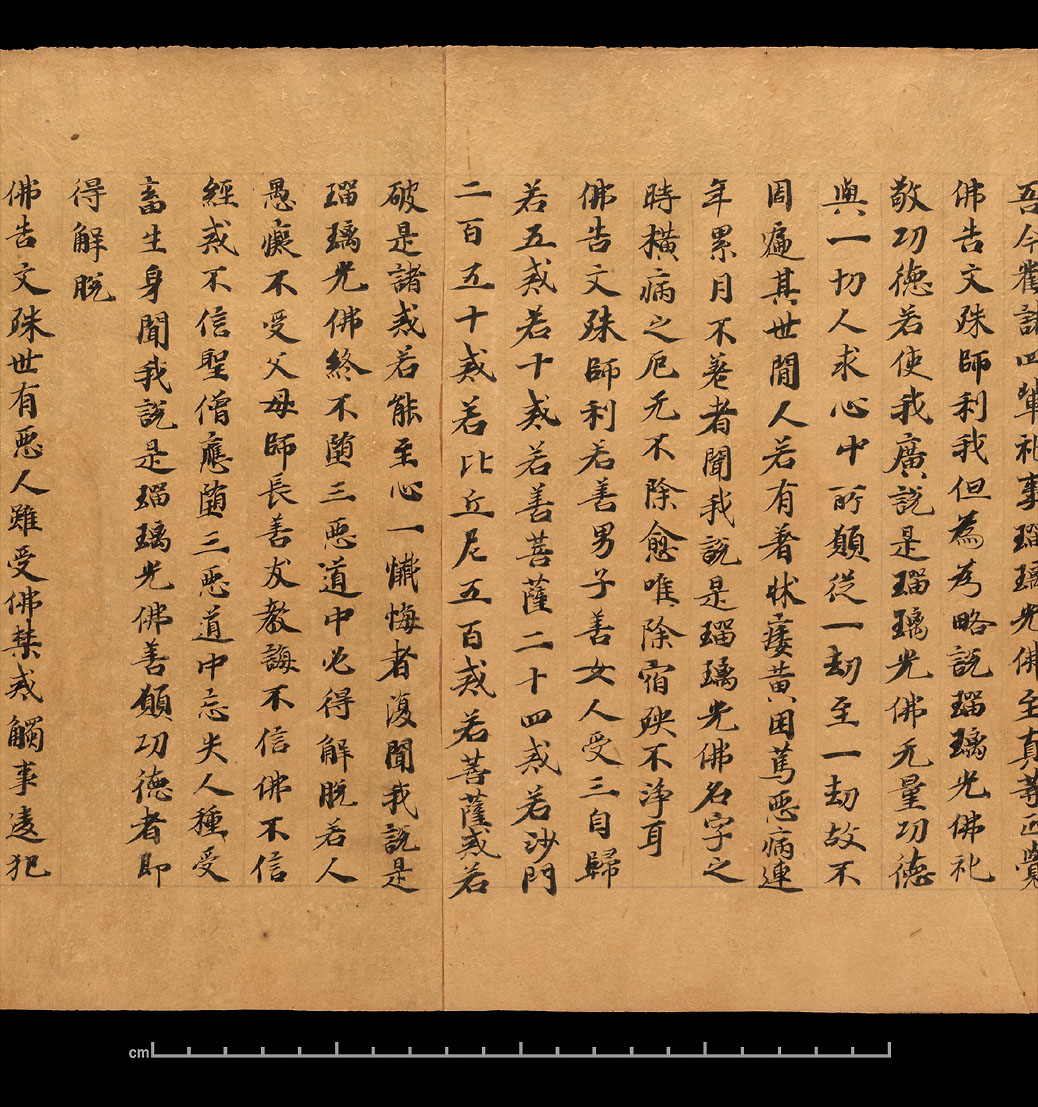 吾今勸諸四輩礼事瑠璃光佛至真等正覺
佛告文殊師利我但為汝略說瑠璃光佛礼
敬功德若使我廣說是瑠璃光佛无量功德
與一切人求心中所願從一劫至一劫故不
周遍其世間人若有著牀痿黄困篤惡病連
年累月不差者聞我說是瑠璃光佛名字之
時横病之厄无不除愈唯除宿殃不淨耳
佛告文殊師利若善男子善女人受三自歸
若五戒若十戒若善菩薩二十四戒若沙門
二百五十戒若比丘尼五百戒若菩薩戒若
破是諸戒若能至心一懺悔者復聞我說是
瑠璃光佛終不墮三惡道中必得解脱若人
愚癡不受父母師長善友教誨不信佛不信
經戒不信聖僧應墮三惡道中忘失人種受
畜生身聞我說是瑠璃光佛善願功德者即
得解脱
佛告文殊世有惡人雖受佛禁戒觸事違犯